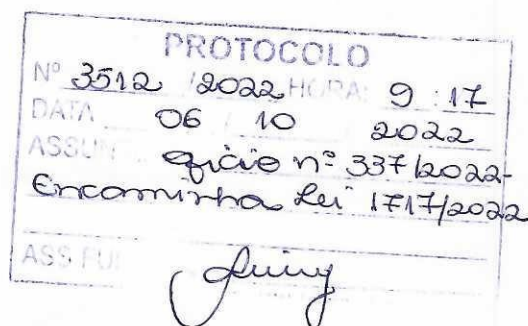 PROTOCOLO
Nº 3512 / 2022 HORA: 9 : 17
DATA 06 / 10 2022
ASSUN ofício nº 337/2022-
Encaminha Lei 1717/2022
ASS FU